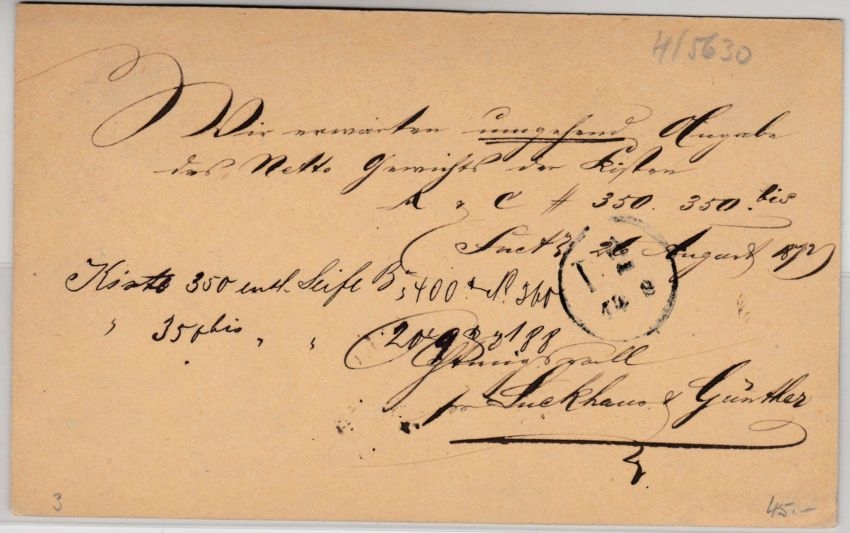 H/5630
Wir erwarten umgehend Angabe
des Netto Gewichts der Kisten
& C # 350. 350.bis
26 August 1872
Kiste 350 enth. Seife B 400 N 360
" 350bis " " 188
Achtungsvoll
pr Luckhaus & Günther
3
45.-